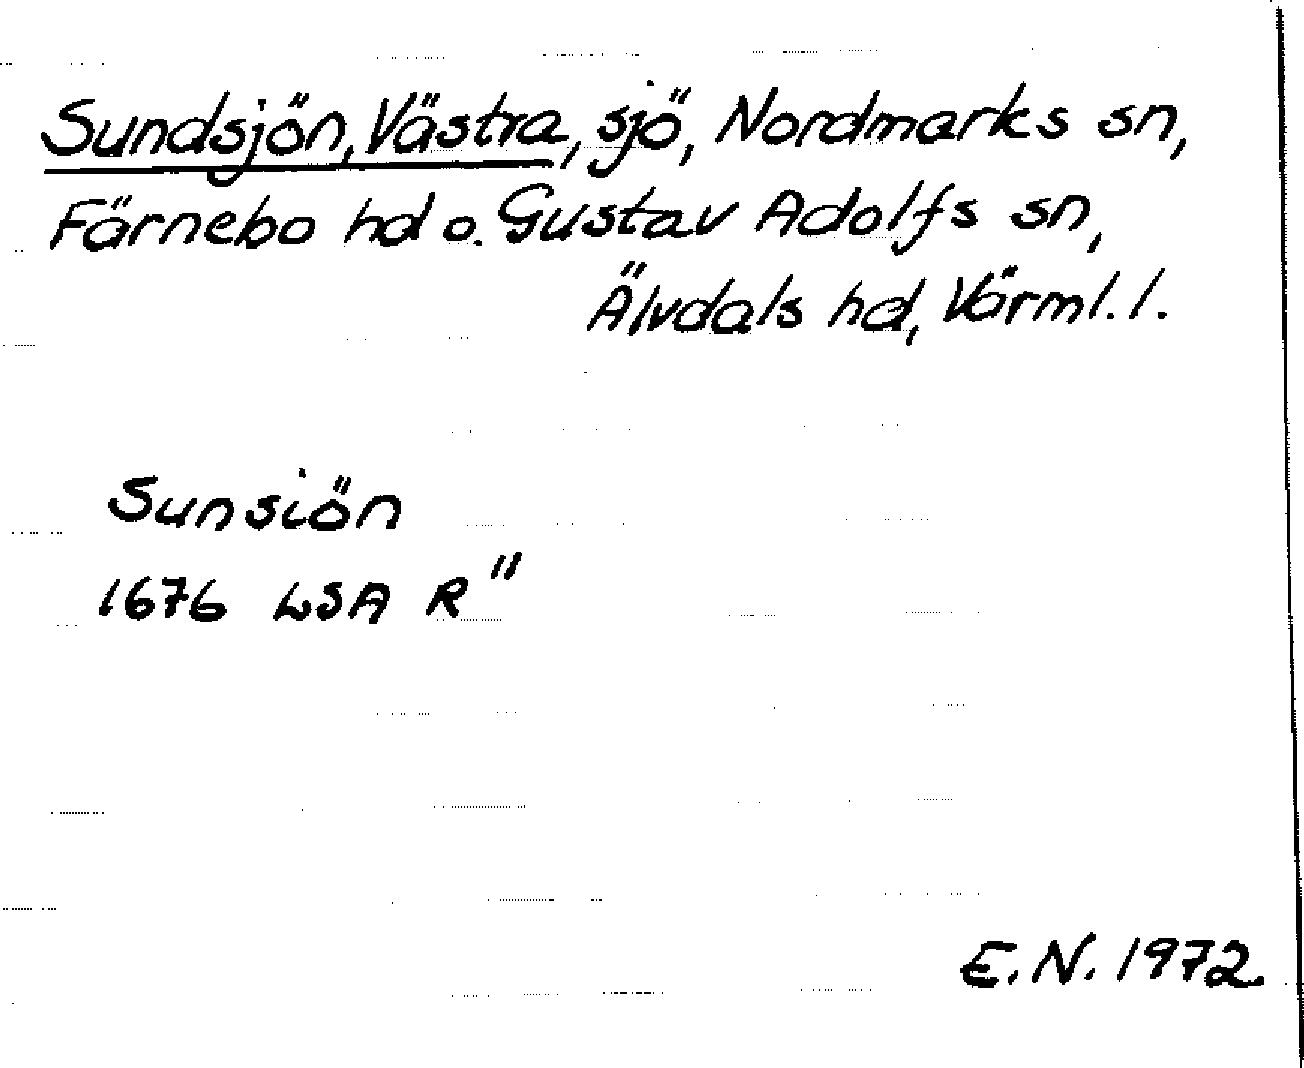 Sundsjön, Västra, sjö, Nordmarks sn,
Färnebo hd o. Gustav Adolfs sn,
Älvdals hd, Värml. l.
Sunsiön
1676 LSA R"
E.N. 1972